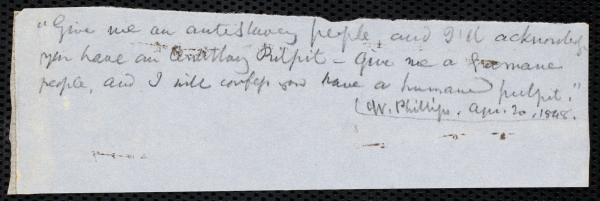 "Give me an antislavery people, and I'll acknowledge
you have an Antislavery Pulpit – Give me a humane
people, and I will confess you have a humane pulpit."
(W. Phillips. Apr. 20, 1848.